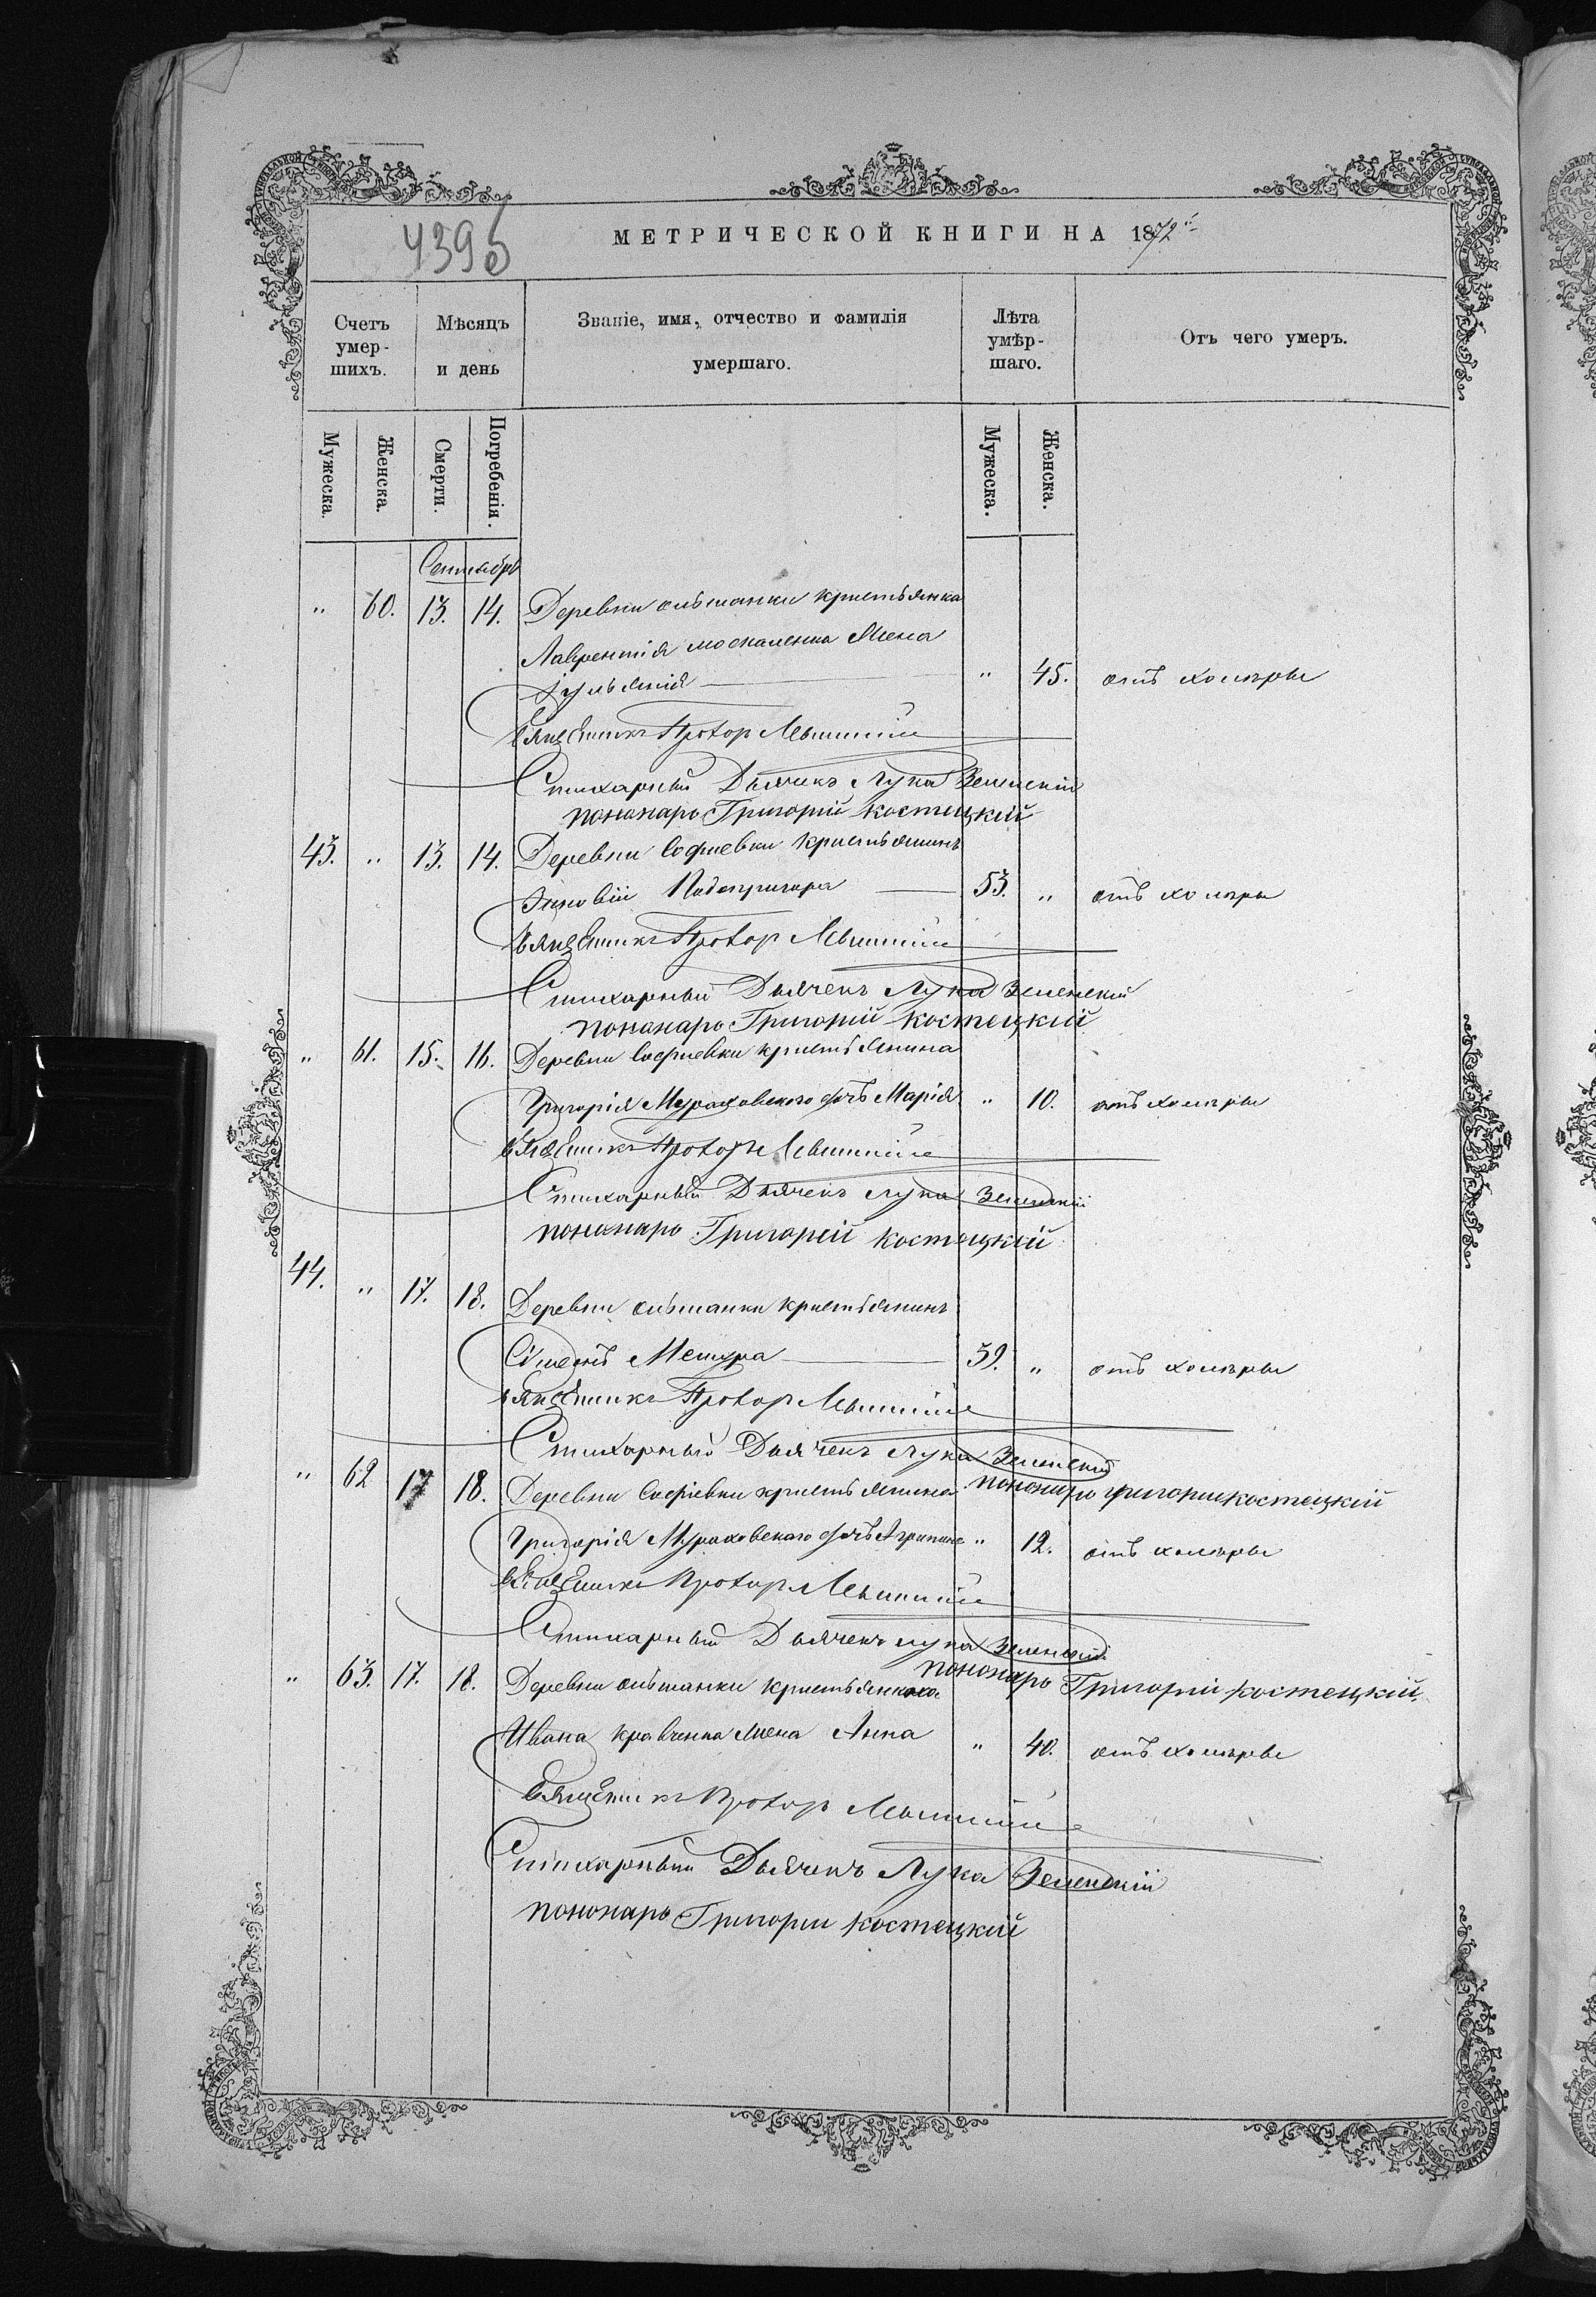 439б
МЕТРИЧЕСКОЙ КНИГИ НА 1872й
Счетъ умер-шихъ.
Мѣсяцъ и день
Званіе, имя, отчество и фамилія умершаго.
Лѣта умѣр-шаго.
Отъ чего умеръ.
Мужеска. Женска. Смерти. Погребенія. Мужеска. Женска.
Сентябрь
" 60. 13. 14. Деревни Ольшанки крестьянка
Лаврентія Москаленка жена
Іуліанія " 45. отъ холеры
Священникъ Прохор
Стихарный Дьячекъ Лука Зеленскій
пономарь Григорій Костецкій
43. " 13. 14. Деревни Софиевки крестьянинъ
Зиновій Подопригора 53. " отъ холеры
Священникъ Прохор
Стихарный Дьячекъ Лука Зеленскій
пономарь Григорій Костецкій
" 61. 15. 16. Деревни Софиевки крестьянина
Григорія Мураховского дочь Марія " 10. отъ холеры
Священникъ Прохоръ
Стихарный Дьячекъ Лука Зеленскій
пономарь Григорій Костецкій
44. " 17. 18. Деревни Ольшанки крестьянинъ
Сімеонъ 59. " отъ холеры
Священникъ Прохор
Стихарный Дьячекъ Лука Зеленскій
пономарь Григорий Костецкій
" 62 17 18. Деревни Софіевки крестьянина
Григорія Мураховского дочь " 12. отъ холеры
Священникъ Прохор
Стихарный Дьячекъ Лука Зеленскій
пономарь Григорій Костецкій
" 63. 17. 18. Деревни Ольшанки
Ивана Кравченка жена Анна " 40. отъ холеры
Священникъ Прохоръ
Стихарный Дьячекъ Лука Зеленскій
пономарь Григорий Костецкий